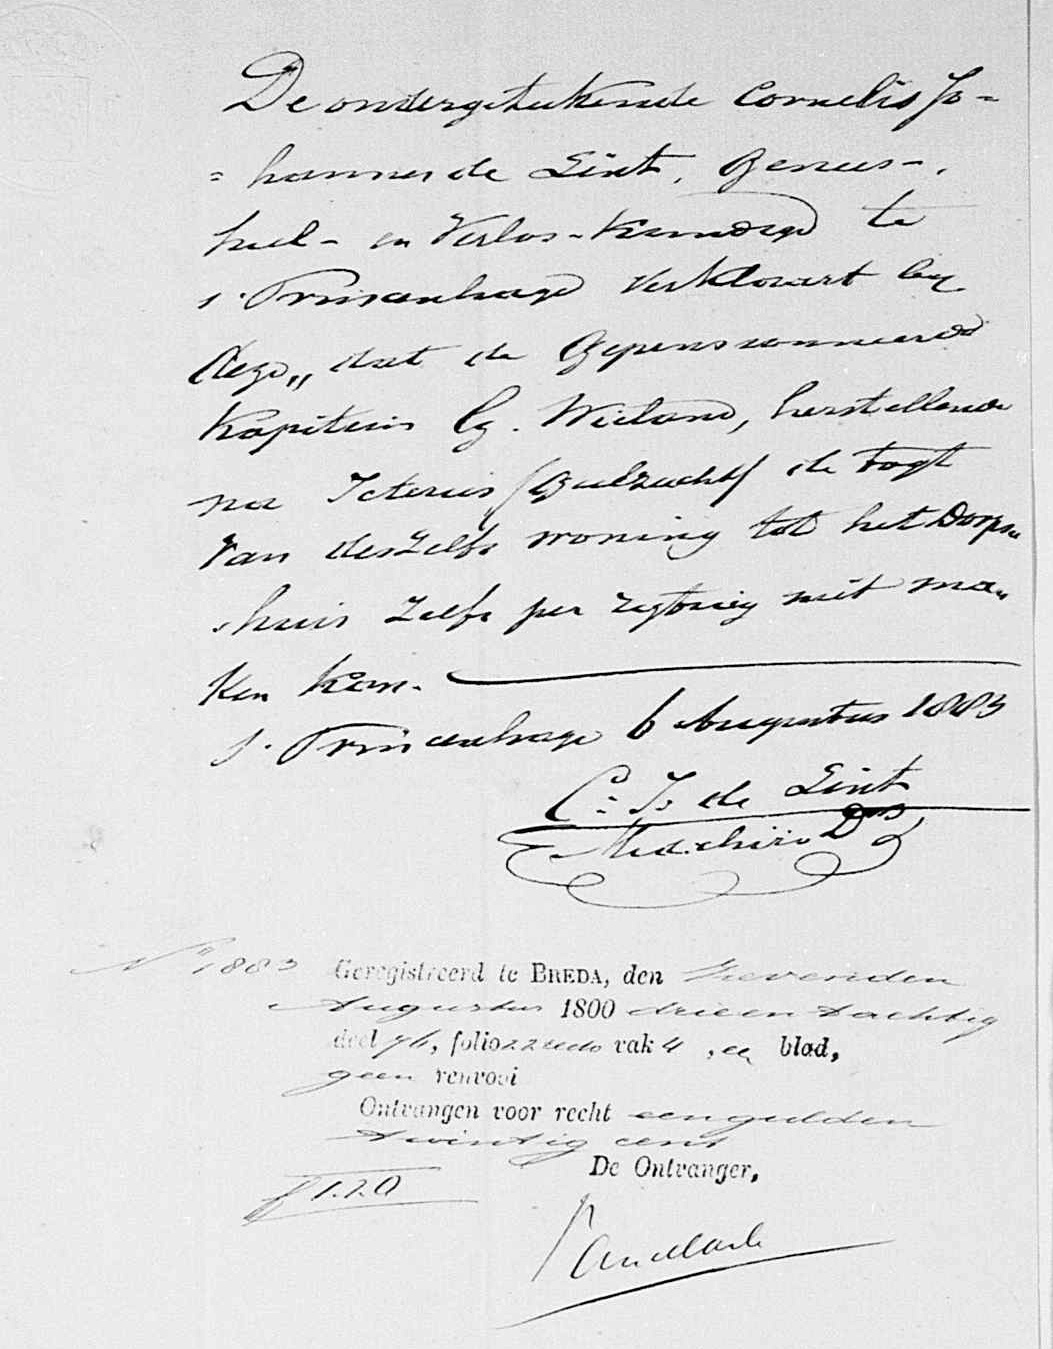 De ondergeteekende Cornelis Jo-
= hannes de Lint, Genees-,
heel- en Verlos-kundige te
s. Princenhage verklaart by
deze,, dat de Gepensionneerde
Kapitein Wieland, herstellende
na Icterus (Geelzucht) de togt
van deszelfs woning tot het Dorps„
huis zelfs per rijtuig niet ma„
ken kan.
s. Princenhage 6 Augustus 1883
C: Js de Lint
Med. chir. Dr
No 1883 Geregistreerd te BREDA, den zevenden
Augustus 1800 drie en tachtig
deel 76, folio 22 recto vak 4, een blad,
geen renvooi
Ontvangen voor recht een gulden
twintig cent
De Ontvanger,
f 1.20